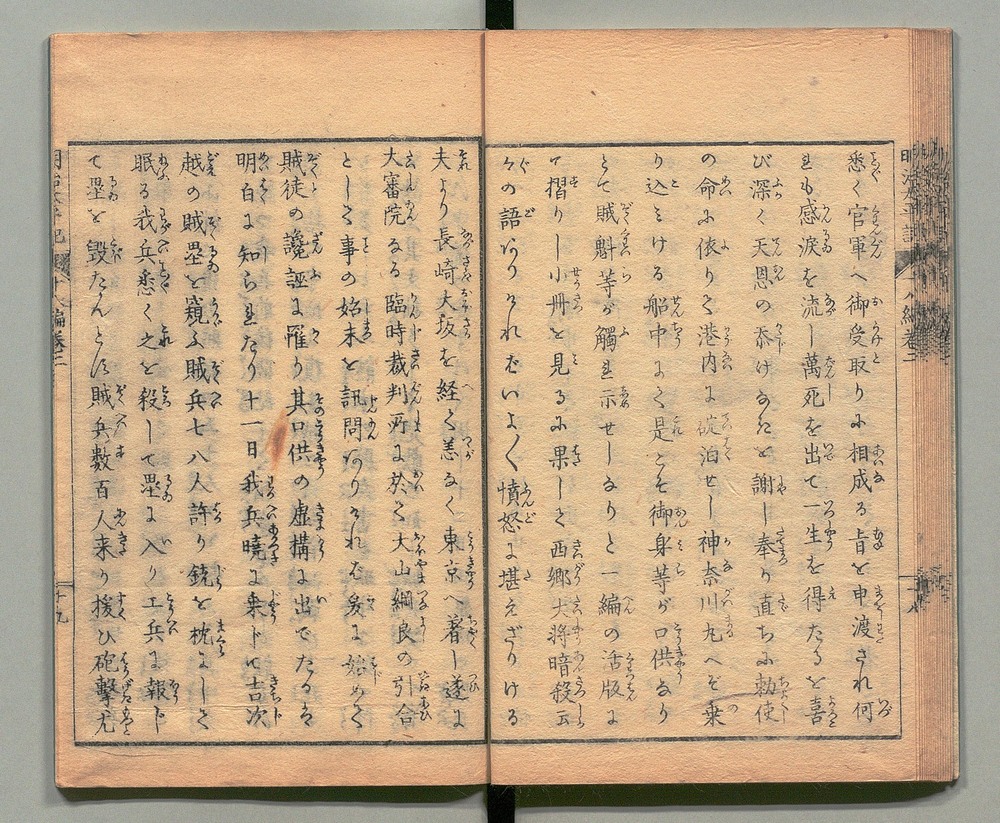 悉く官軍へ御受取りに相成る旨を申渡され何
れも感涙を流し萬死を出て一生を得たるを喜
び深く天恩の忝けなきを謝し奉り直ちに勅使
の命に依りて港内に碇泊せし神奈川丸へぞ乗
り込みける船中にて是こそ御身等が口供なり
とて賊魁等が觸れ示せしなりと一編の活版に
て摺りし小冊を見るに果して西郷大将暗殺云
々の語ありければいよ〱憤怒に堪えざりける
夫より長崎大坂を経て恙なく東京へ着し遂に
大審院なる臨時裁判所に於て大山綱良の引合
として事の始末を訊問ありければ爰に始めて
賊徒の讒誣に罹り其口供の虚構に出でたるは
明白に知られたり十一日我兵暁に乗じて吉次
越の賊塁を窺ふ賊兵七八人許り銃を枕にして
眠る我兵悉く之を殺して塁に入り工兵に報じ
て塁を毀たんとす賊兵数百人来り援ひ砲撃尤